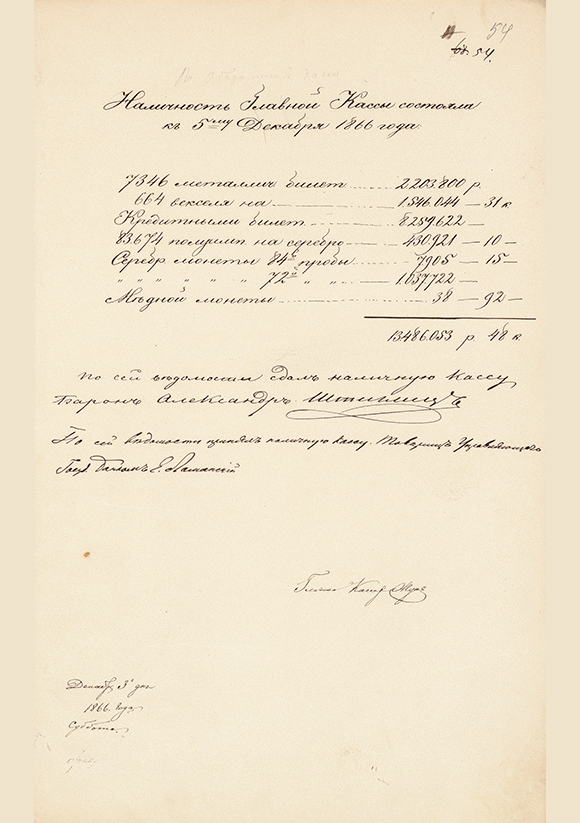 54
54.
Наличность Главной Кассы состояла
къ 5му Декабря 1866 года.
7346 металлич билет 2203.800 р.
664 векселя на 1.546.044 — 31 к
Кредитными билет 8259.622 —
83674 полуимп. на серебро 430.921 — 10 —
Серебр. монеты 84й пробы 7905 — 15 —
" " " " 72й " 1.037.722 —
Мѣдной монеты 38 — 92 —
13486.053 р 48 к.
По сей вѣдомости сдалъ наличную Кассу
Баронъ Александръ Штиглицъ
По сей вѣдомости принялъ наличную кассу. Товарищъ Управляющаго
Госуд. Банкомъ Е. Ламанскій
Декабр. 3го дня
1866. года.
Суббота.